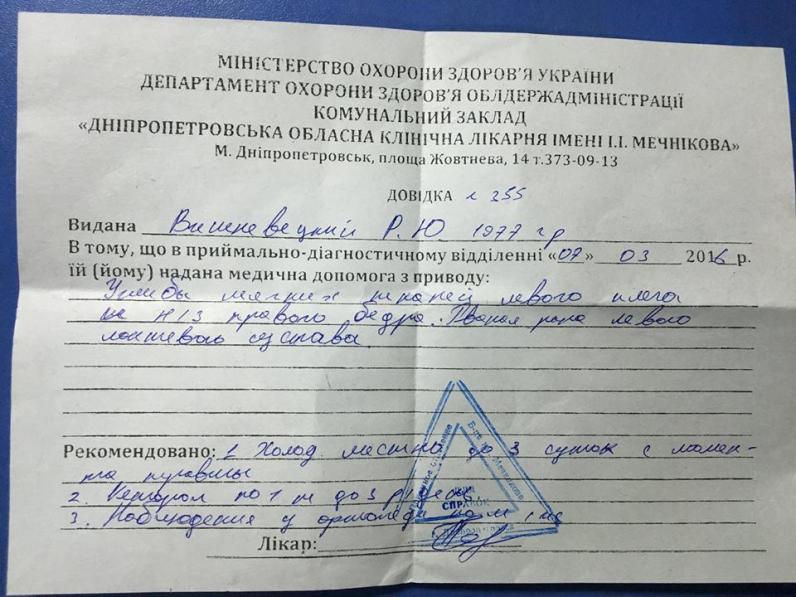 МІНІСТЕРСТВО ОХОРОНИ ЗДОРОВ'Я УКРАЇНИ
ДЕПАРТАМЕНТ ОХОРОНИ ЗДОРОВ'Я ОБЛДЕРЖАДМІНІСТРАЦІЇ
КОМУНАЛЬНИЙ ЗАКЛАД
«ДНІПРОПЕТРОВСЬКА ОБЛАСНА КЛІНІЧНА ЛІКАРНЯ ІМЕНІ І.І. МЕЧНІКОВА»
М. Дніпропетровськ, площа Жовтнева, 14 т.373-09-13
ДОВІДКА 255
Видана Вишневецкий Р.Ю 1977 гр
В тому, що в приймально-діагностичному відділенні «07» 03 2016 р.
їй (йому) надана медична допомога з приводу:
Ушибы мягких тканей левого плеча
н/з правого бедра. Рваная рана левого
локтевого сустава.
Рекомендовано: 1 Холод местно до 3 суток с момен-
та травмы
2. Кеторол по 1 т до 3 р
3. Наблюдение у ортопеда по м/ж
СПРАВОК
Лікар: